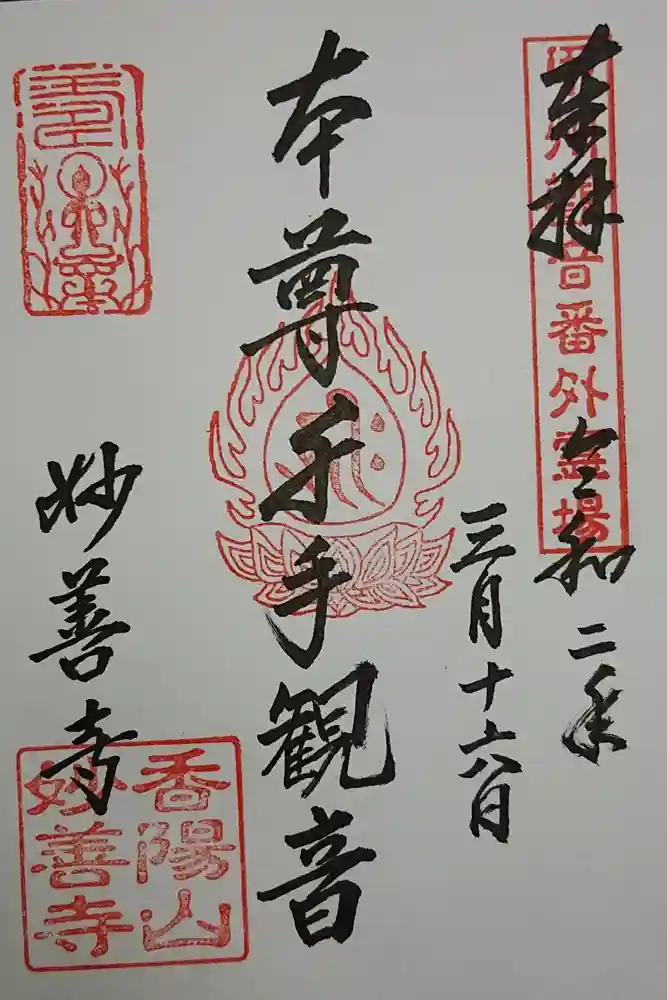 奉拝
令和二年
三月十六日
観音番外霊場
本尊千手観音
妙善寺
香陽山
妙善寺